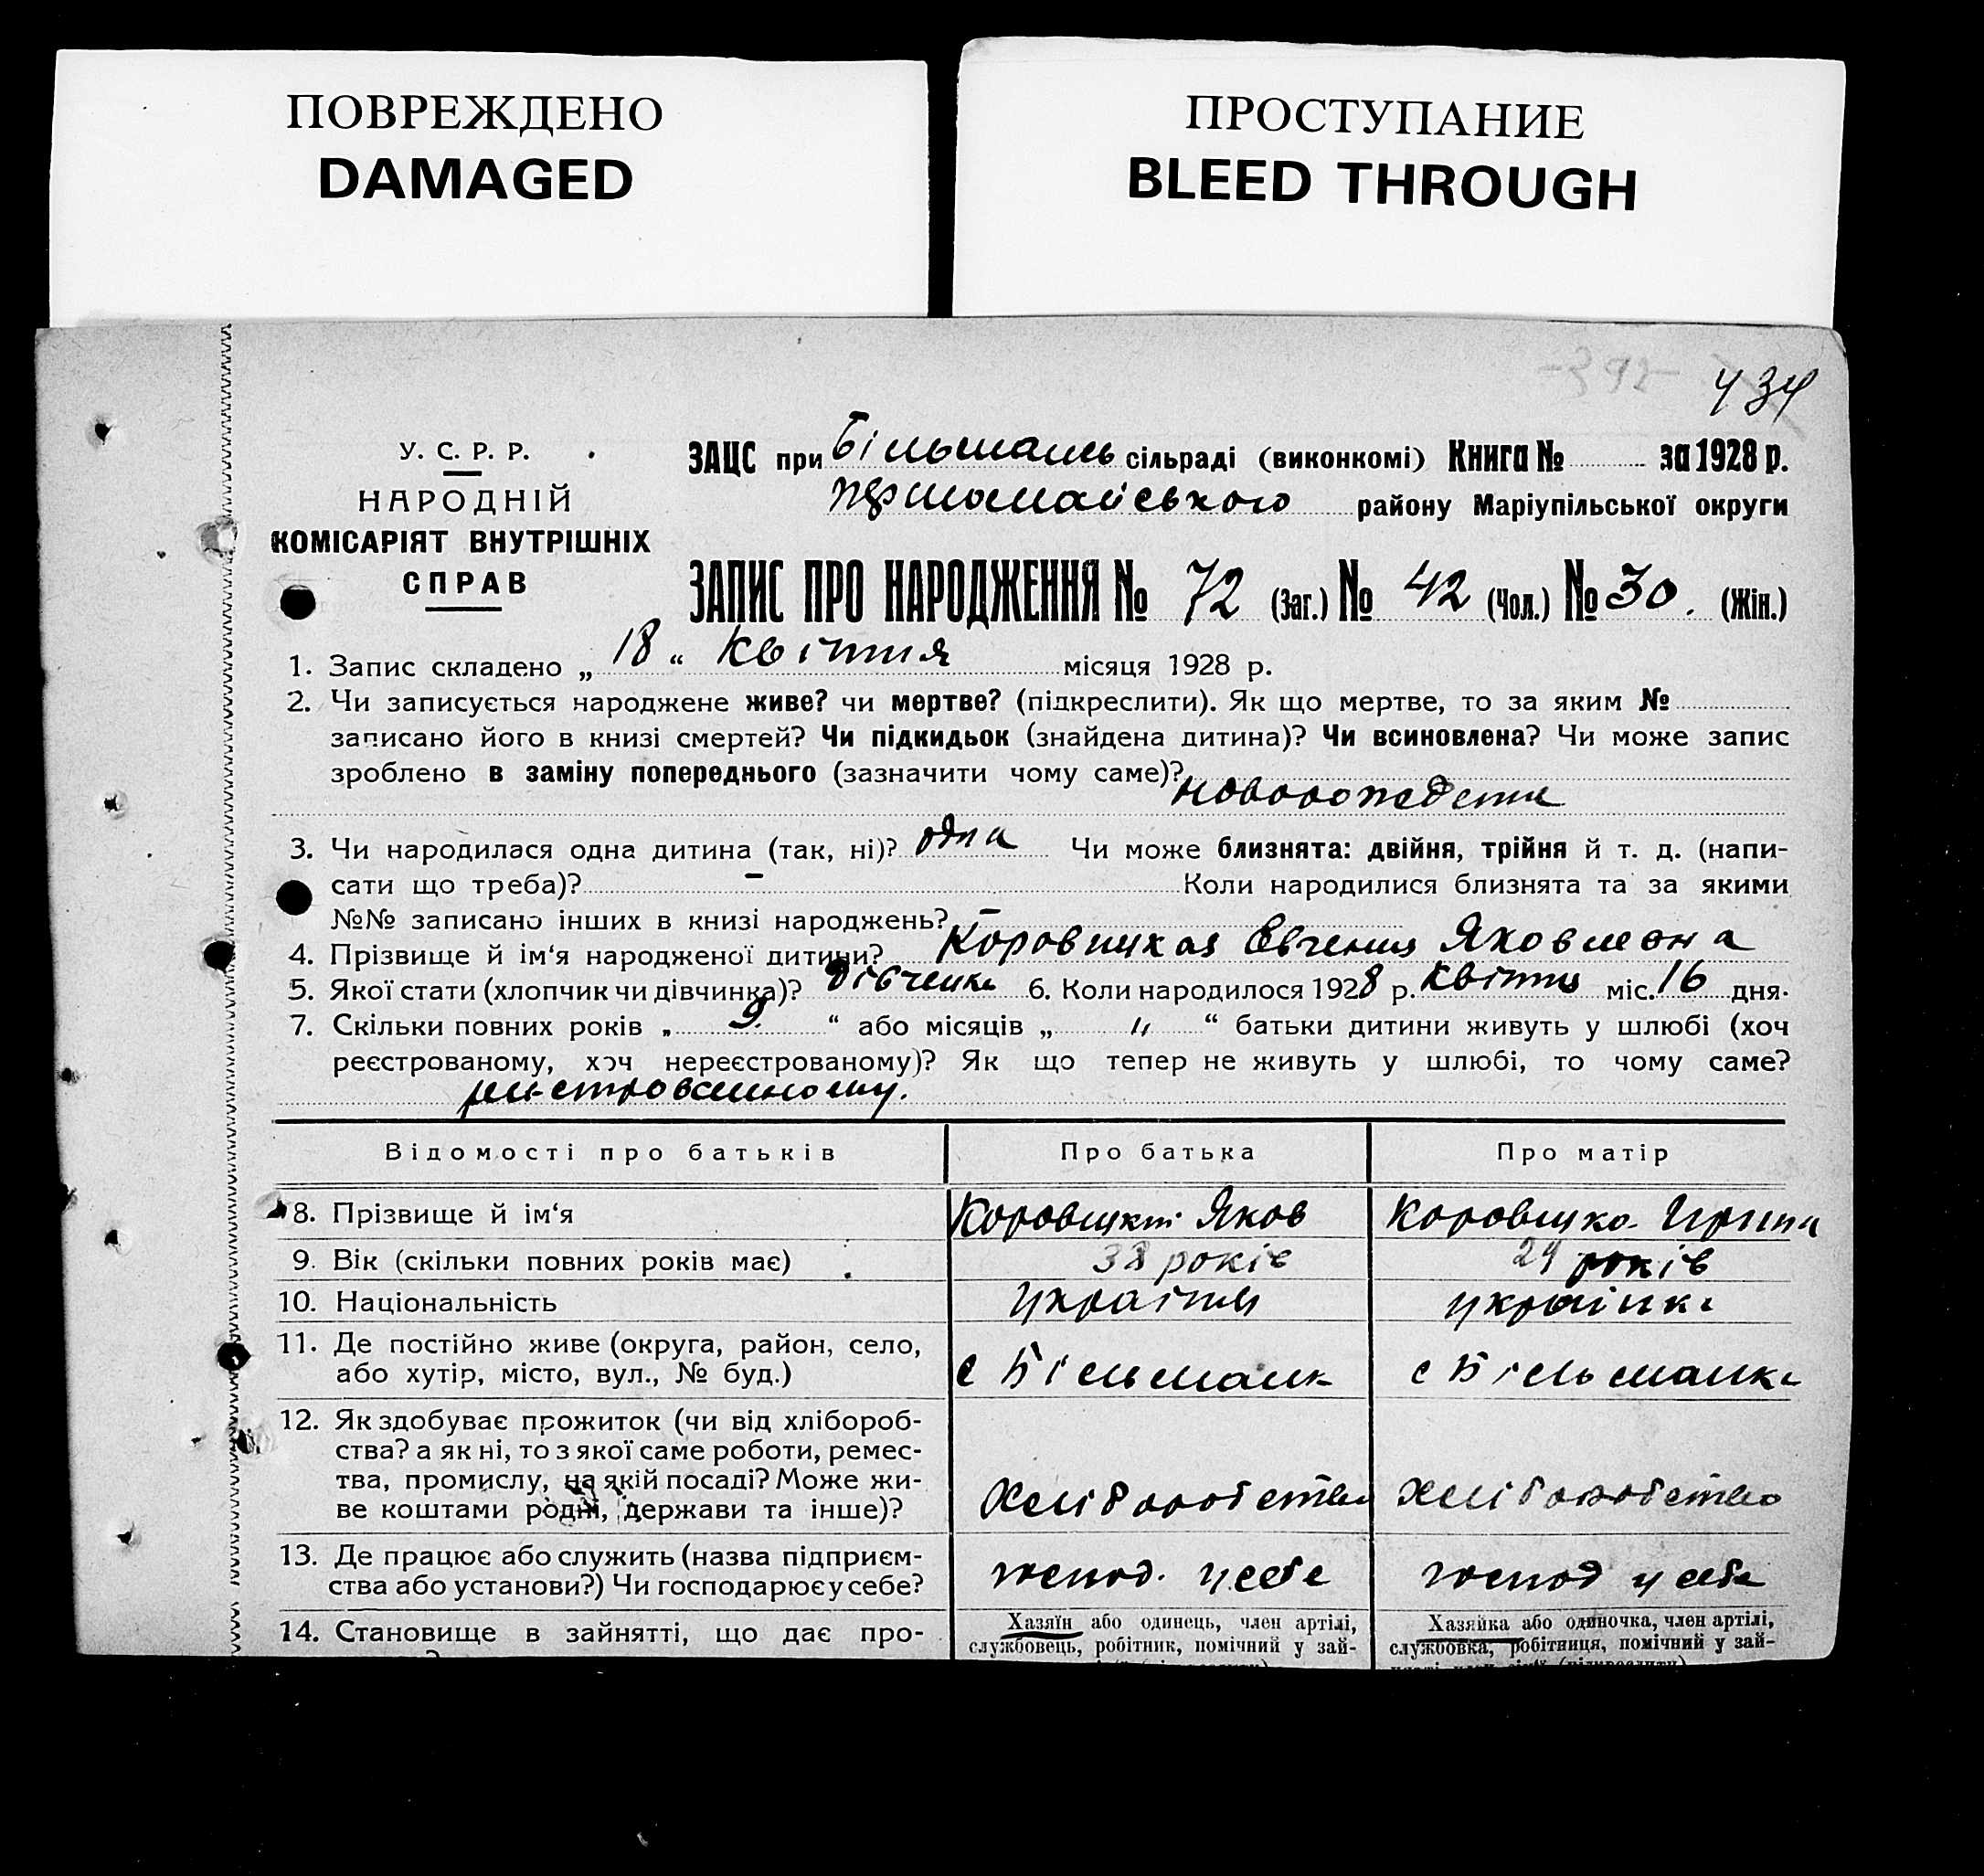 ПОВРЕЖДЕНО
DAMAGED
ПРОСТУПАНИЕ
BLEED THROUGH
-392-
434
У. С. Р. Р.
НАРОДНІЙ
КОМІСАРІЯТ ВНУТРІШНІХ
СПРАВ
ЗАЦС при Більмань сільраді (виконкомі) Книга № за 1928 р.
першомайського району Маріупільської округи
ЗАПИС ПРО НАРОДЖЕННЯ № 72 (Заг.) № 42 (Чол.) № 30. (Жін.)
1. Запис складено „ 18 “ Квітня місяця 1928 р.
2. Чи записується народжене живе? чи мертве? (підкреслити). Як що мертве, то за яким №
записано його в книзі смертей? Чи підкидьок (знайдена дитина)? Чи всиновлена? Чи може запис
зроблено в заміну попереднього (зазначити чому саме)?
3. Чи народилася одна дитина (так, ні)? одна Чи може близнята: двійня, трійня й т. д. (напи-
сати що треба)? - Коли народилися близнята та за якими
№№ записано інших в книзі народжень? -
4. Прізвище й ім‘я народженої дитини? Коровицкая Евгения Яковлевна
5. Якої стати (хлопчик чи дівчинка)? Дівченка 6. Коли народилося 1928 р. Квітня міс. 16 дня.
7. Скільки повних років „ 9. “ або місяців „ “ батьки дитини живуть у шлюбі (хоч
реєстрованому, хоч нереєстрованому)? Як що тепер не живуть у шлюбі, то чому саме?
Відомості про батьків Про батька Про матір
8. Прізвище й ім‘я Яков Ирина
9. Вік (скільки повних років має) 38 років 29 років
10. Національність українка
11. Де постійно живе (округа, район, село,
або хутір, місто, вул., № буд.) с Більманк с Більманка
12. Як здобуває прожиток (чи від хлібороб-
ства? а як ні, то з якої саме роботи, ремес-
тва, промислу, на якій посаді? Може жи-
ве коштами родні, держави та інше)? Хліборобство хліборобство
13. Де працює або служить (назва підприєм-
ства або установи?) Чи господарює у себе? господ. у себе господ у себе
14. Становище в зайнятті, що дає про-
Хазяїн або одинець, член артілі,
службовець, робітник, помічний у зай-
Хазяйка або одиночка, член артілі,
службовка, робітниця, помічний у зай-